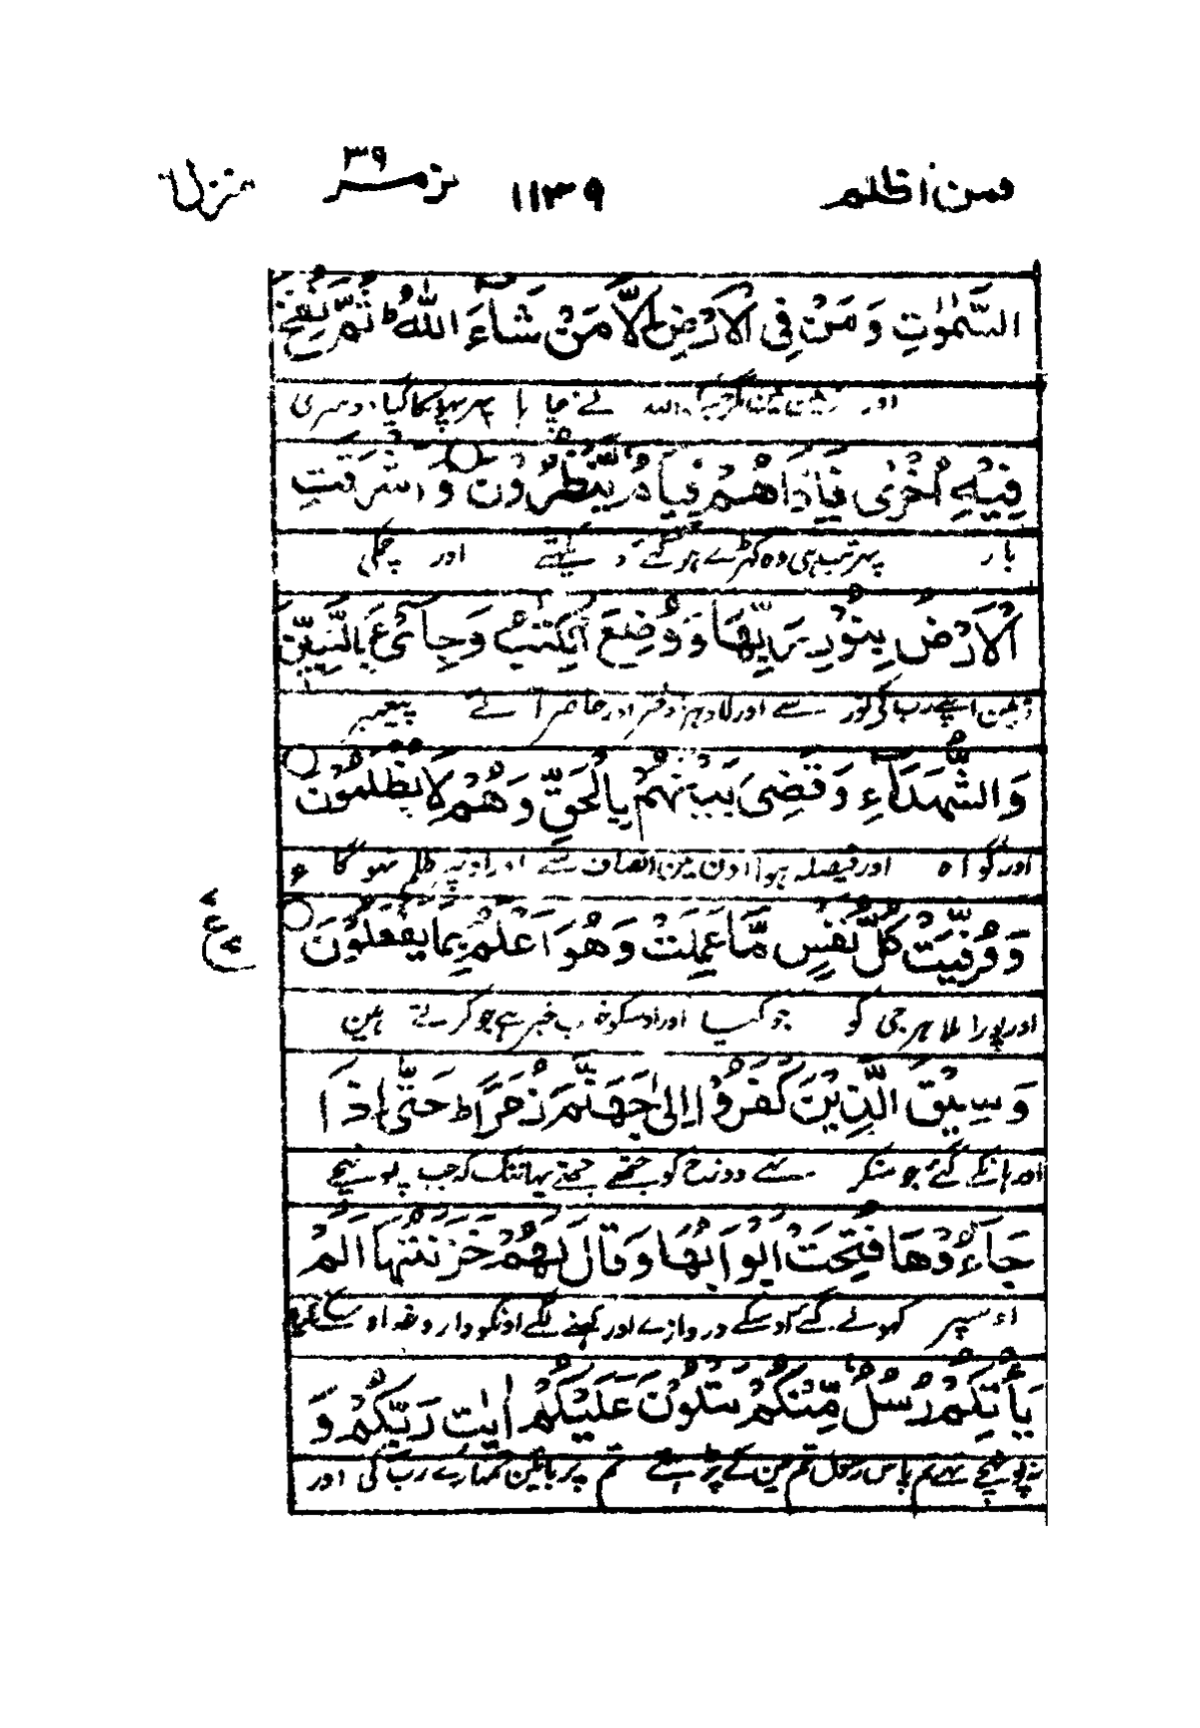 فمن اظلم ۱۱۳۹ زمر ۳۹ منزل
السَّمٰوٰتِ وَ مَنْ فِی الْاَرْضِ اِلَّا مَنْ شَآءَ اللّٰهُ ؕ ثُمَّ نُفِخَ
اور اللہ نے چا ہا پھر پھونکا گیا دوسری
فِیْهِ اُخْرٰی فَاِذَا هُمْ قِیَامٌ یَّنْظُرُوْنَ ○ وَ اَشْرَقَتِ
بار پھر تب ہی وہ کھڑے ہو گئے دیکھتے اور چمکی
الْاَرْضُ بِنُوْرِ رَبِّهَا وَ وُضِعَ الْكِتٰبُ وَ جِایْٓءَ بِالنَّبِیّٖنَ
زمین اپنے رب کی نور سے اور لا دہرا دفتر اور حاضر آئے پیغمبر
وَ الشُّهَدَآءِ وَ قُضِیَ بَیْنَهُمْ بِالْحَقِّ وَ هُمْ لَا یُظْلَمُوْنَ ○
اور گواہ اور فیصلہ ہوا اون مین انصاف سے اور اونپہ ظلم نہو گا ۶
وَ وُفِّیَتْ كُلُّ نَفْسٍ مَّا عَمِلَتْ وَ هُوَ اَعْلَمُ بِمَا یَفْعَلُوْنَ ○
اور پورا ملا ہر جی کو جو کیا اور اوسکو خوب خبر ہے جو کرتے ہین
وَ سِیْقَ الَّذِیْنَ كَفَرُوْۤا اِلٰی جَهَنَّمَ زُمَرًا ؕ حَتّٰۤی اِذَا
اور ہانکے گئے جو منکر تھے دوزخ کو جتھے جتھے یہانتک کہ جب پہونچے
جَآءُوْهَا فُتِحَتْ اَبْوَابُهَا وَ قَالَ لَهُمْ خَزَنَتُهَاۤ اَلَمْ
اوسپر کھولے گئے اوسکے دروازے اور کہنے لگے اونکو داروغہ اوسکے کیا
یَاْتِكُمْ رُسُلٌ مِّنْكُمْ یَتْلُوْنَ عَلَیْكُمْ اٰیٰتِ رَبِّكُمْ وَ
نہ پہونچے تھے تم پاس رسول تم مین کے پڑہتے تم پر باتین تمہارے رب کی اور